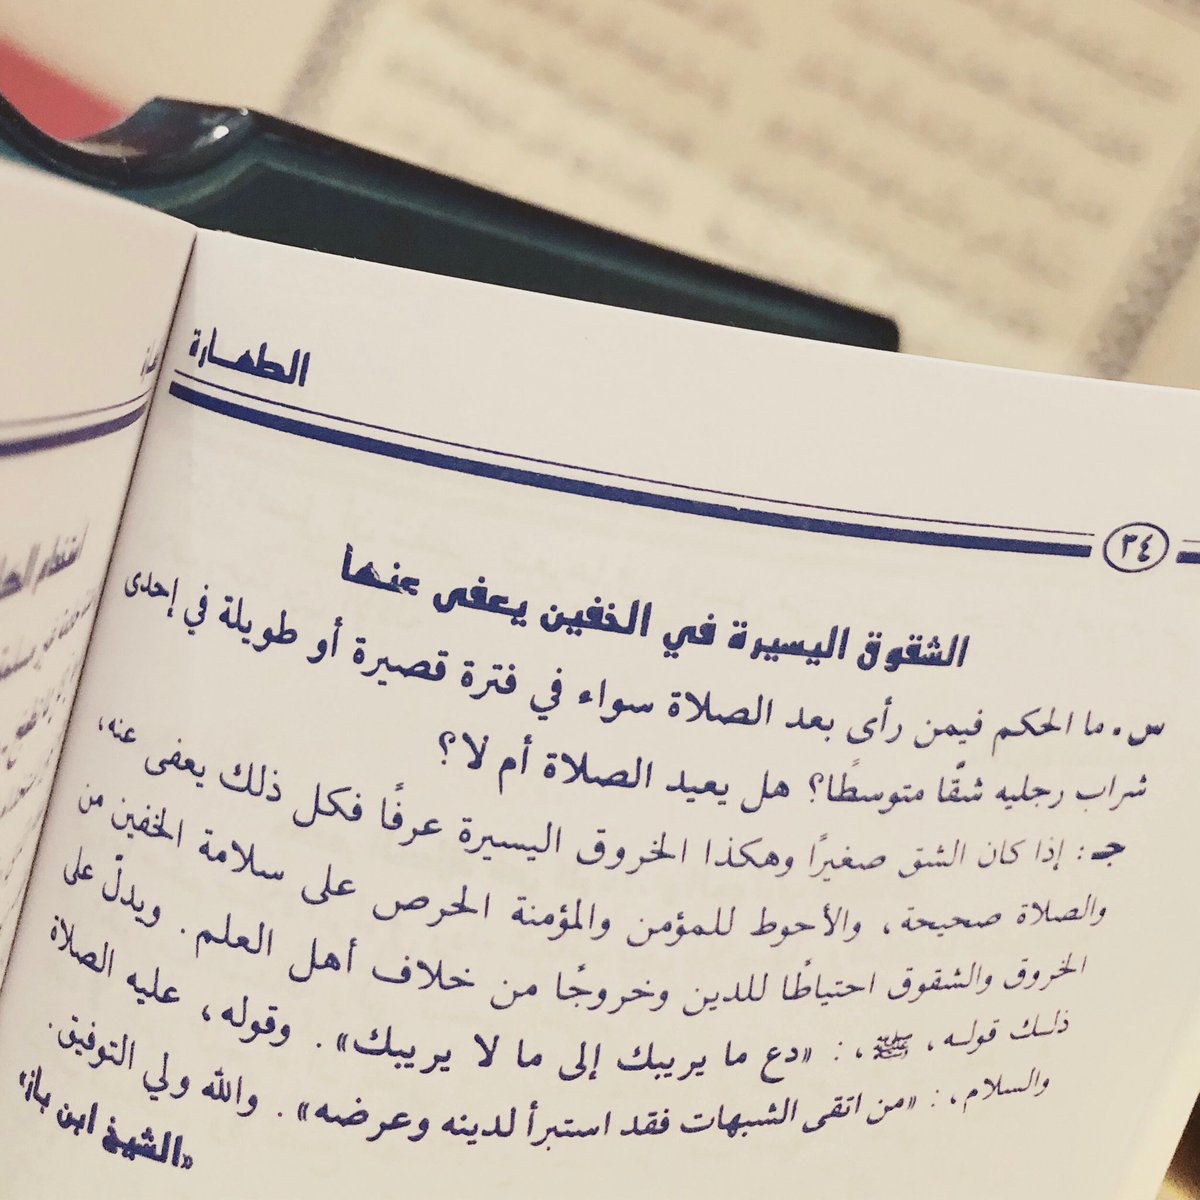 الطهارة
٣٤
الشقوق اليسيرة في الخفين يعفى عنها
س. ما الحكم فيمن رأى بعد الصلاة سواء في فترة قصيرة أو طويلة في إحدى
شراب رجليه شقًا متوسطًا؟ هل يعيد الصلاة أم لا؟
جـ: إذا كان الشق صغيرًا وهكذا الخروق اليسيرة عرفًا فكل ذلك يعفى عنه،
والصلاة صحيحة، والأحوط للمؤمن والمؤمنة الحرص على سلامة الخفين من
الخروق والشقوق احتياطًا للدين وخروجًا من خلاف أهل العلم. ويدلّ على
ذلك قوله، ﷺ،: «دع ما يريبك إلى ما لا يريبك». وقوله، عليه الصلاة
والسلام،: «من اتقى الشبهات فقد استبرأ لدينه وعرضه». والله ولي التوفيق.
«الشيخ ابن باز»